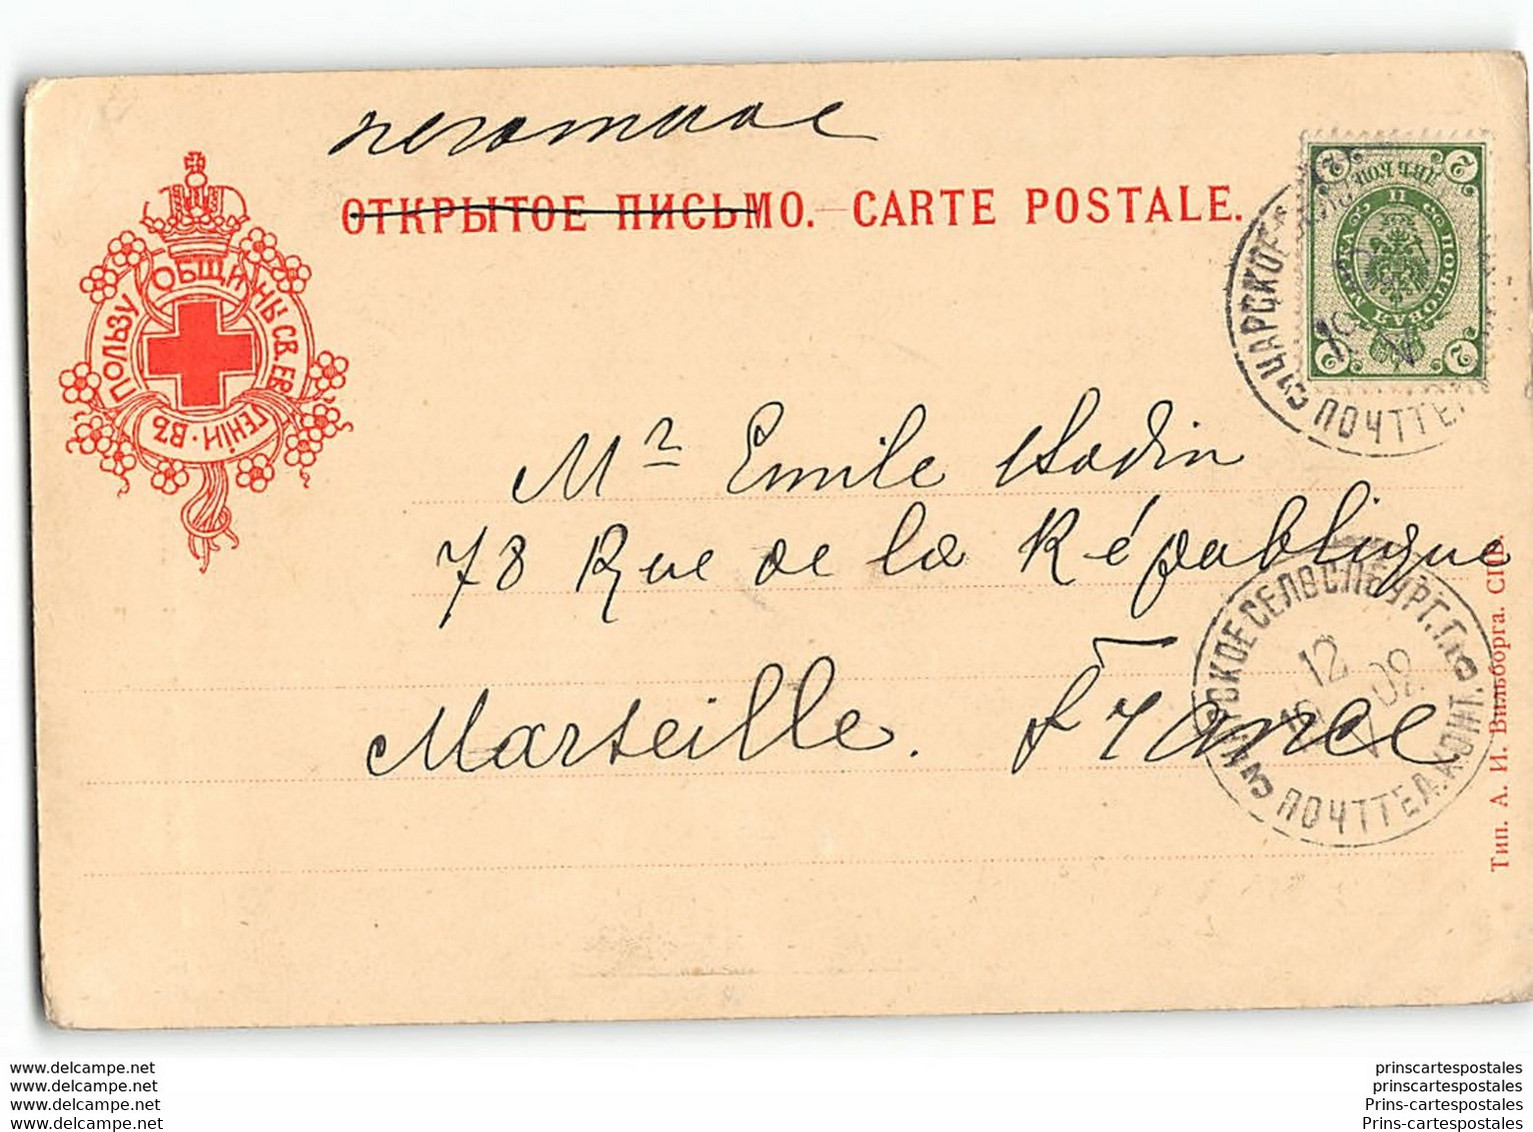 печатное
ОТКРЫТОЕ ПИСЬМО. — CARTE POSTALE.
ВЪ ПОЛЬЗУ ОБЩИНЫ СВ. ЕВГЕНІИ
2 ДВѢ КОП 2
ПОЧТОВАЯ МАРКА
2 2
ЦАРСКОЕ
ПОЧТ ТЕЛ
Mr Emile
78 Rue de la République
Marseille. France
ЦАРСКОЕ СЕЛО С ПБУРГ. Г.
12
02
ПОЧТ ТЕЛ. КОНТ.
Тип. А. И. Вильборга. СПБ.
www.delcampe.net
www.delcampe.net
www.delcampe.net
www.delcampe.net
prinscartespostales
prinscartespostales
Prins-cartespostales
Prins-cartespostales